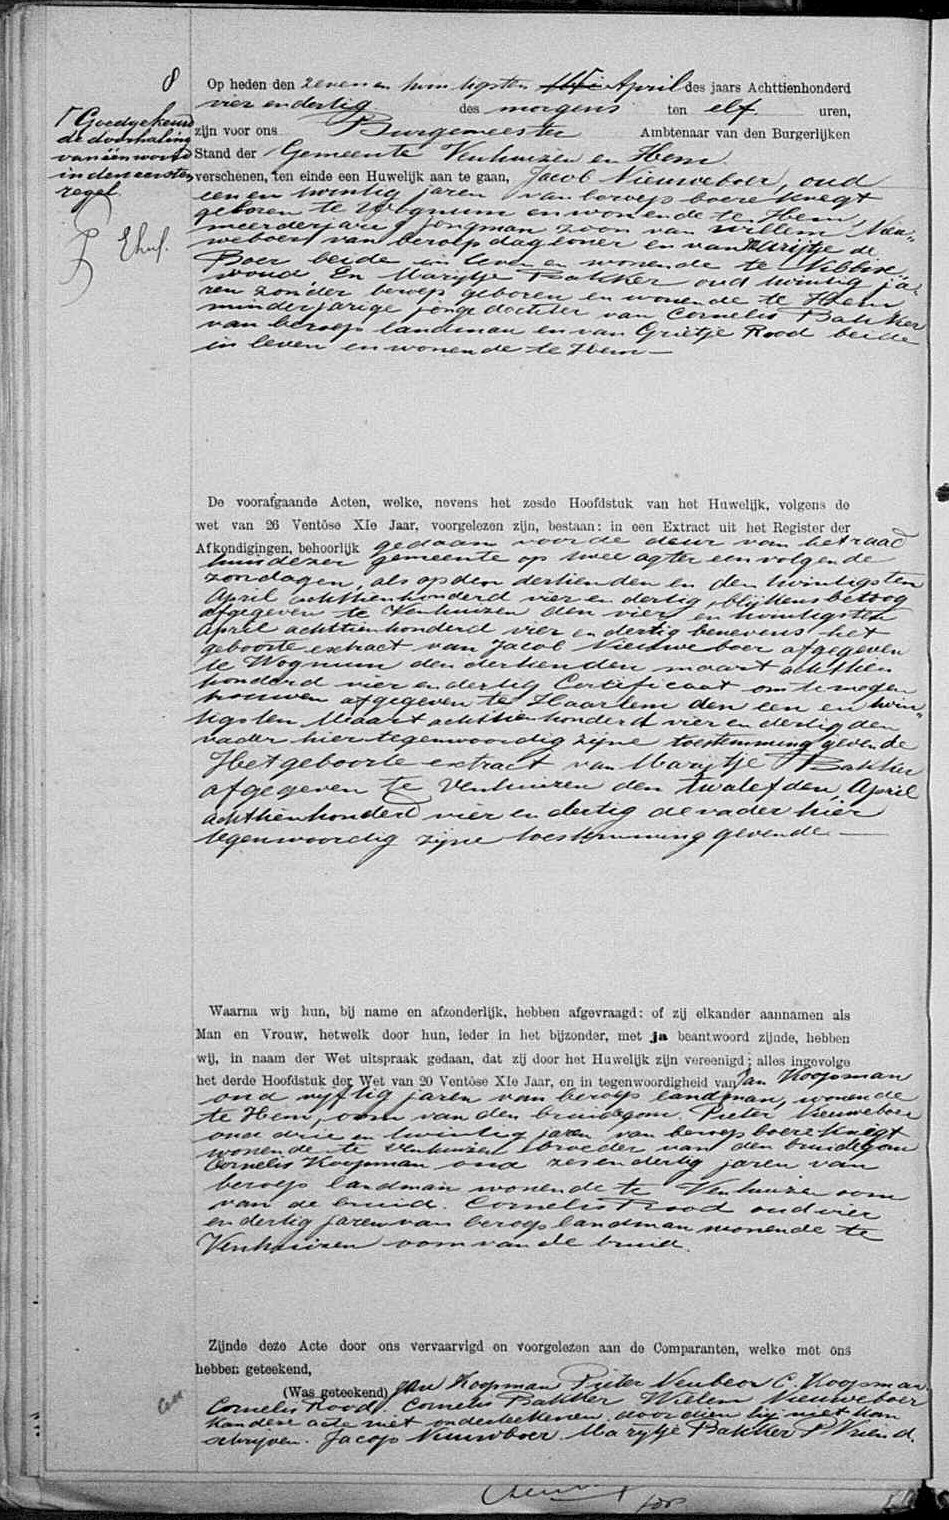 8
Op heden den zeven en twintigsten April des jaars Achttienhonderd
vier en dertig des morgens ten elf uren,
zijn voor ons Burgemeester Ambtenaar van den Burgerlijken
Stand der Gemeente Venhuizen en Hem
verschenen, ten einde een Huwelijk aan te gaan, Jacob Nieuweboer, oud
een en twintig jaren van beroep boere knegt
geboren te Wognum en wonende te Hem,
meerderjarig jongman zoon van Willem Nieu„
weboer van beroep dagloner en van Marijtje de
Boer beide in leven en wonende te Nibbix„
woud En Marijtje Bakker oud twintig ja„
ren zonder beroep geboren en wonende te Hem
minderjarige jonge dochter van Cornelis Bakker
van beroep landman en van Grietje Rood beide
in leven en wonende te Hem —
Goedgekeurd
de doorhaling
van één woord
in den eersten
regel
De voorafgaande Acten, welke, nevens het zesde Hoofdstuk van het Huwelijk, volgens de
wet van 26 Ventôse XIe Jaar, voorgelezen zijn, bestaan: in een Extract uit het Register der
Afkondigingen, behoorlijk gedaan voor de deur van het raad
huis dezer gemeente op twee agter een volgende
zondagen, als op den dertienden en den twintigsten
April achttienhonderd vier en dertig, blijkens betoog
afgegeven te Venhuizen den vier en twintigsten
April achttienhonderd vier en dertig benevens het
geboorte extract van Jacob Nieuweboer afgegeven
te Wognum den dertienden maart achttien
honderd vier en dertig Certificaat om te mogen
trouwen afgegeven te Haarlem den een en twin„
tigsten Maart achttienhonderd vier en dertig den
vader hier tegenwoordig zijne toestemming gevende
Het geboorte extract van Marijtje Bakker
afgegeven te Venhuizen den twalefden April
achttienhonderd vier en dertig de vader hier
tegenwoordig zijne toestemming gevende —
Waarna wij hun, bij name en afzonderlijk, hebben afgevraagd: of zij elkander aannamen als
Man en Vrouw, hetwelk door hun, ieder in het bijzonder, met ja beantwoord zijnde, hebben
wij, in naam der Wet uitspraak gedaan, dat zij door het Huwelijk zijn vereenigd; alles ingevolge
het derde Hoofdstuk der Wet van 20 Ventôse XIe Jaar, en in tegenwoordigheid van Jan Koopman
oud vijftig jaren van beroep landman, wonende
te Hem, oom van den bruidegom. Pieter Nieuweboer
oud drie en twintig jaren van beroep boere knegt
wonende te Venhuizen broeder van den bruidegom
Cornelis Koopman oud zes en dertig jaren van
beroep landman wonende te Venhuizen oom
van de bruid. Cornelis Rood oud vier
en dertig jaren van beroep landman wonende te
Venhuizen oom van de bruid.
Zijnde deze Acte door ons vervaarvigd en voorgelezen aan de Comparanten, welke met ons
hebben geteekend,
(Was geteekend) Jan Koopman Pieter Neuboor C. Koopman
Cornelis Rood. Cornelis Bakker Willem Nieuweboer
kan deze acte niet onderteekenen, doordien hij niet kan
schrijven. Jacop Nieuwboer Marytje Bakker P Vriend.